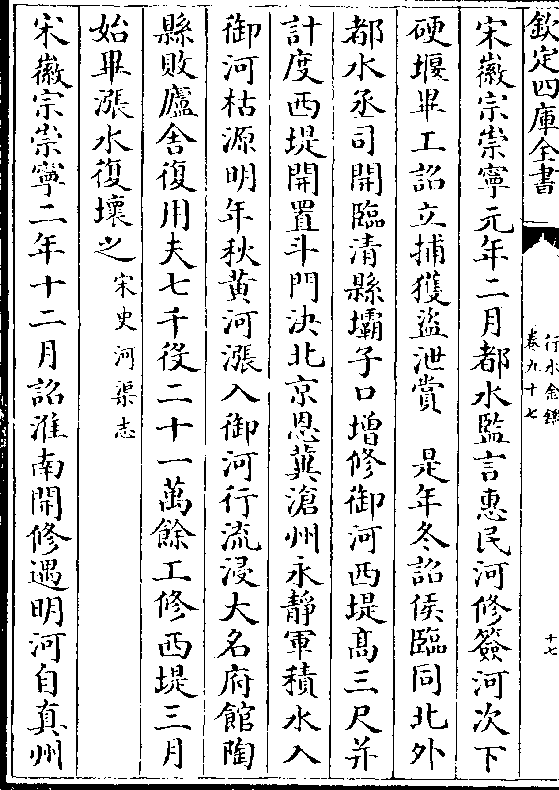 欽定四庫全書
行水金鑑
卷九十七
十七
宋徽宗崇寧元年二月都水監言惠民河修簽河次下
硬堰畢工詔立捕獲盜泄賞　是年冬詔侯臨同北外
都水丞司開臨清縣壩子口增修御河西堤高三尺并
計度西堤開置斗門決北京恩冀滄州永靜軍積水入
御河枯源明年秋黄河漲入御河行流浸大名府館陶
縣敗廬舍復用夫七千役二十一萬餘工修西堤三月
始畢漲水復壞之宋史河渠志
宋徽宗崇寧二年十二月詔淮南開修遇明河自真州